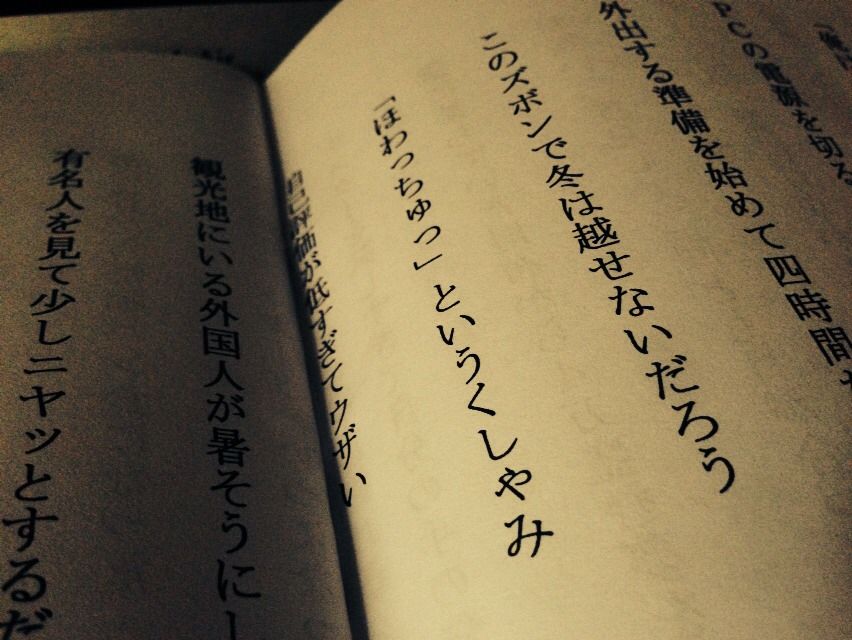 「俺は
PCの電源を切る
外出する準備を始めて四時間
このズボンで冬は越せないだろう
「ほわっちゅっ」というくしゃみ
自己評価が低すぎてウザい
観光地にいる外国人が暑そうにし
有名人を見て少しニヤッとするだ